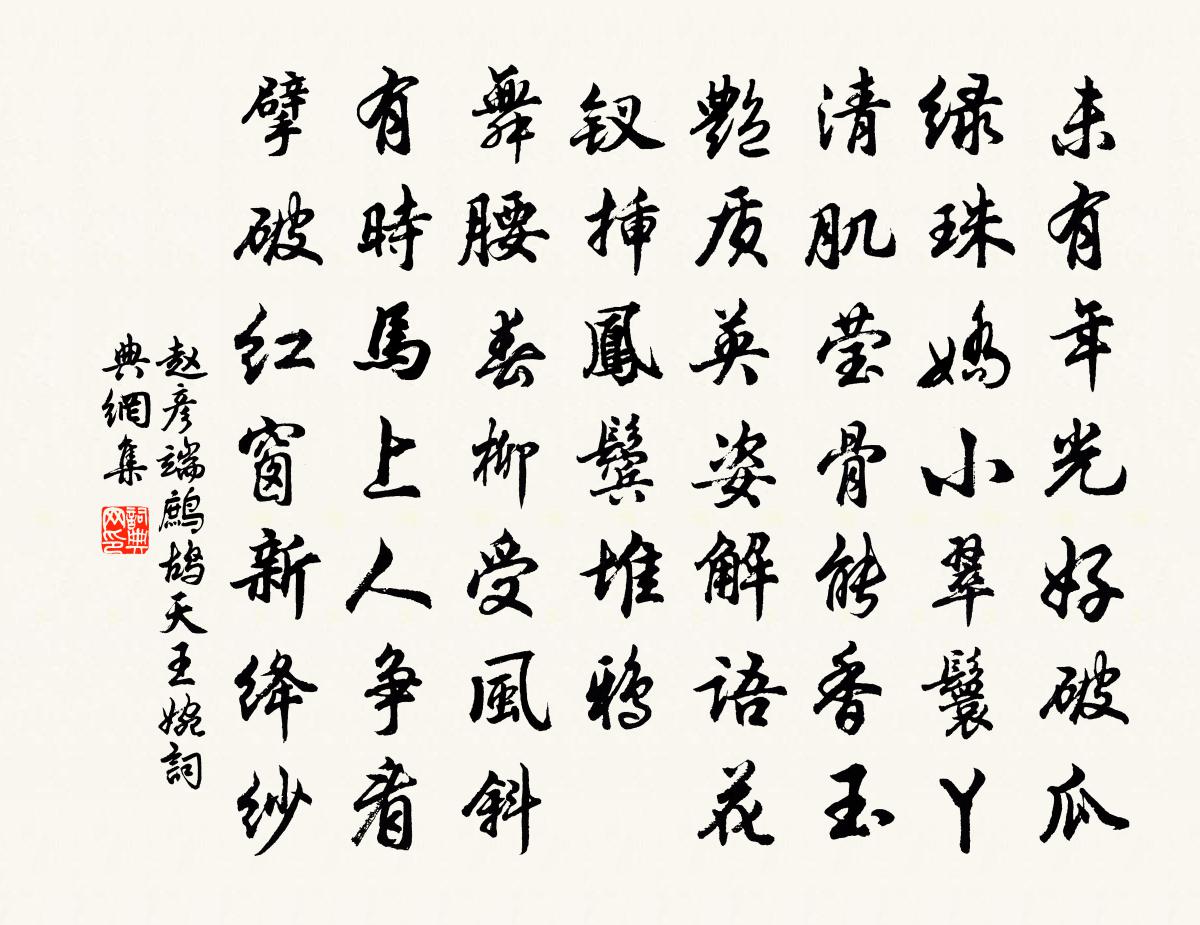 未有年光好破瓜
绿珠嬌小翠鬟丫
清肌莹骨能香玉
艷质英姿解語花
钗插鳳鬓堆鸦
舞腰春柳受風斜
有時馬上人争看
擘破红窗新绛纱
赵彦端鹧鸪天王婉詞
典網集
詞典网印